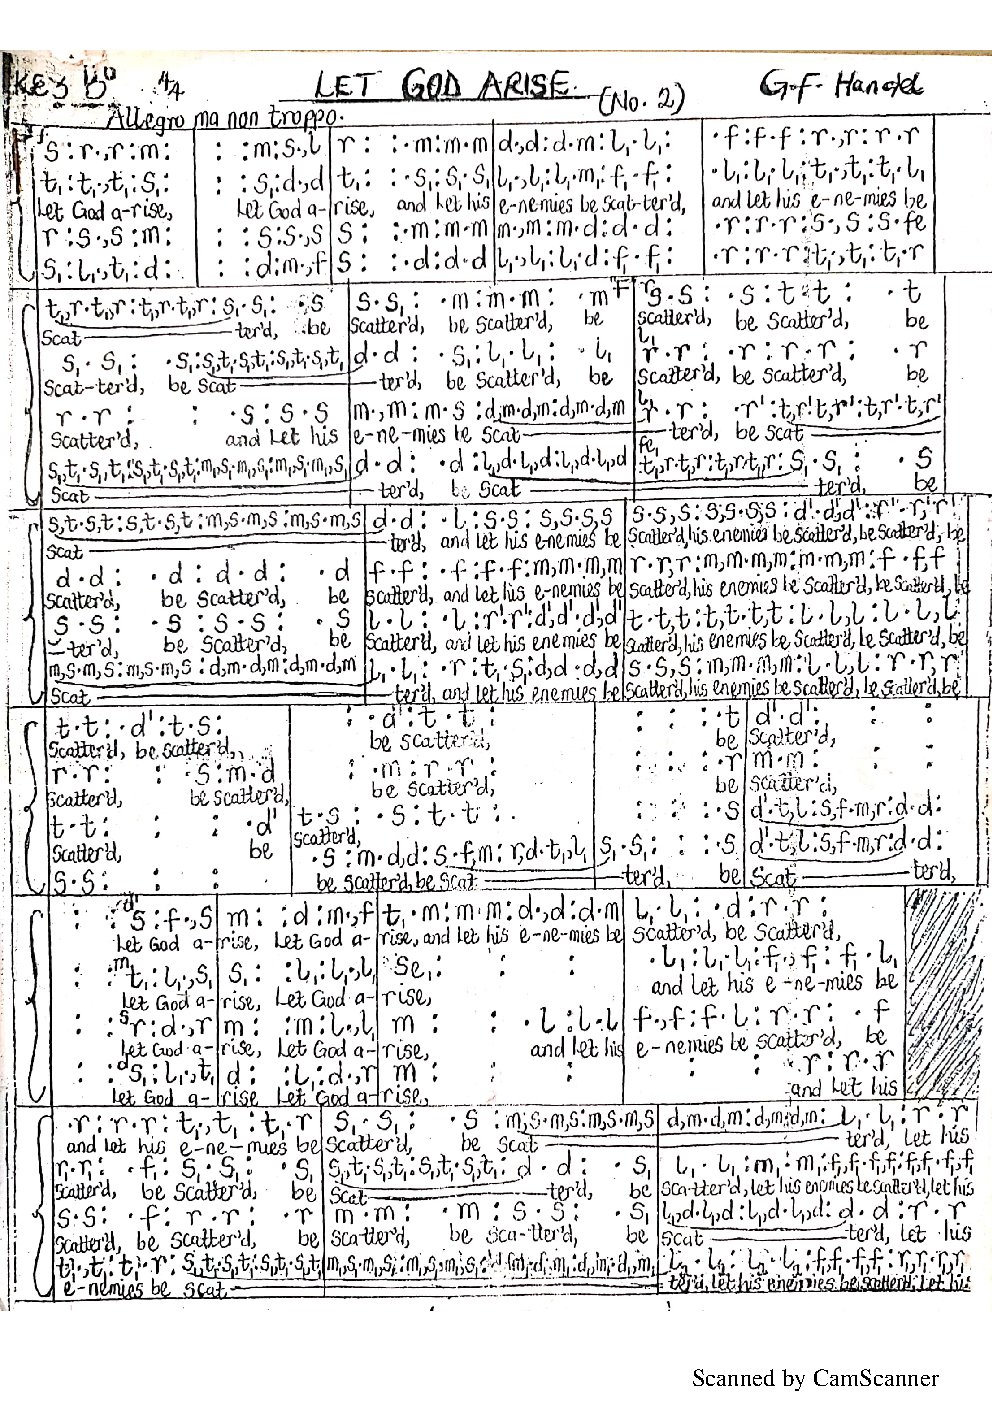 KEY b 4/4 LET GOD ARISE. (No. 2) G.F. Handel
Allegro ma non troppo.
S:r.,r:m: | : :m:S.,l | r: :.m:m.m | d.,d:d.m:l₁.l₁: | .f:f.f:r.,r:r.r
t₁:t₁.,t₁:S₁: | : :S₁:d.,d | t₁: :.S₁:S₁.S₁ | l₁.,l₁:l₁.m₁:f₁.f₁: | .l₁:l₁.l₁:t₁.,t₁:t₁.l₁
Let God a-rise, Let God a-rise, and Let his e-nemies be Scat-ter'd, and let his e-ne-mies be
r:S.,S:m: | : :S:S.,S | S: :.m:m.m | m.,m:m.d:d.d: | .r:r.r:S.,S:S.fe
S₁:l₁.,t₁:d: | : :d:m.,f | S: :.d:d.d | l₁.,l₁:l₁.d:f₁.f₁: | .r:r.r:t₁.,t₁:t₁.r
t₁,r.t₁,r:t₁,r.t₁,r:S₁.S₁: .S | S.S₁: .m:m.m: .m | S.S: .S:t.t: .t
Scat ter'd, be Scatter'd, be Scatter'd, be Scatter'd, be Scatter'd, be
S₁.S₁: .S₁:S₁,t₁.S₁,t₁:S₁,t₁.S₁,t₁ | d.d: .S₁:l₁.l₁: .l₁ | r.r: .r:r.r: .r
Scat-ter'd, be Scat ter'd, be Scatter'd, be Scatter'd, be Scatter'd, be
r.r: : .S:S.S | m.,m:m.S:d,m.d,m:d,m.d,m | r.r: .r':t,r'.t,r':t,r'.t,r'
Scatter'd, and Let his e-ne-mies be Scat ter'd, be Scat
S₁,t₁.S₁,t₁:S₁,t₁.S₁,t₁:m₁,S₁.m₁,S₁:m₁,S₁.m₁,S₁ | d.d: .d:l₁,d.l₁,d:l₁,d.l₁,d | t₁,r.t₁,r:t₁,r.t₁,r:S₁.S₁: .S
Scat ter'd, be Scat ter'd, be
S,t.S,t:S,t.S,t:m,S.m,S:m,S.m,S | d.d: .l:S.S:S,S.S,S | S.S,S:S,S.S,S:d'.d',d':r'.r',r'
Scat ter'd, and let his enemies be Scatter'd, his enemies be scatter'd, be Scatter'd, be
d.d: .d:d.d: .d | f.f: .f:f.f:m,m.m,m | r.r,r:m,m.m,m:m.m,m:f.f,f
Scatter'd, be Scatter'd, be Scatter'd, and let his e-nemies be Scatter'd, his enemies be Scatter'd, be Scatter'd, be
S.S: .S:S.S: .S | l.l: .l:r'.r':d',d'.d',d' | t.t,t:t,t.t,t:l.l,l:l.l,l
-ter'd, be Scatter'd, be Scatter'd, and let his enemies be Scatter'd, his enemies be Scatter'd, be Scatter'd, be
m,S.m,S:m,S.m,S:d,m.d,m:d,m.d,m | l₁.l₁: .r:t₁.S₁:d,d.d,d | S.S,S:m,m.m,m:l.l,l:r.r,r
Scat ter'd, and let his enemies be Scatter'd, his enemies be Scatter'd, be Scatter'd, be
t.t: .d':t.S: | : .d':t.t: | : : : .t | d'.d': : :
Scatter'd, be scatter'd, be Scatter'd, be Scatter'd,
r.r: : .S:m.d | : .m:r.r: | : : : .r | m.m: : :
Scatter'd, be scatter'd, be Scatter'd, be Scatter'd,
t.t: : : .d' | t.S: .S:t.t: | : : : .S | d'.t,l:S,f.m,r:d.d:
Scatter'd, be Scatter'd,
S.S: : : | .S:m.d,d:S.f,m:r,d.t₁,l₁ | S₁.S₁: : : .S | d'.t,l:S,f.m,r:d.d:
be Scatter'd, be Scat ter'd, be Scat ter'd,
: :S:f.,S | m: :d:m.,f | t₁.m:m.m:d.,d:d.m | l₁.l₁: .d:r.r:
Let God a-rise, Let God a-rise, and let his e-ne-mies be Scatter'd, be Scatter'd,
: :t₁:l₁.,S₁ | S₁: :l₁:l₁.,l₁ | Se₁: : : | .l₁:l₁.l₁:f₁.,f₁:f₁.l₁
Let God a-rise, Let God a-rise, and let his e-ne-mies be
: :r:d.,r | m: :m:l.,l | m: : .l:l.l | f.,f:f.l:r.r: .f
Let God a-rise, Let God a-rise, and let his e-nemies be Scatter'd, be
: :S₁:l₁.,t₁ | d: :l₁:d.,r | m: : : | : : .r:r.r
Let God a-rise Let God a-rise, and Let his
.r:r.r:t₁.,t₁:t₁.r | S₁.S₁: .S:m,S.m,S:m,S.m,S | d,m.d,m:d,m.d,m:l₁.l₁:r.r
and let his e-ne-mies be Scatter'd, be Scat ter'd, let his
r.r: .f:S₁.S₁: .S₁ | S₁,t₁.S₁,t₁:S₁,t₁.S₁,t₁:d.d: .S₁ | l₁.l₁:m₁.m₁:f₁,f₁.f₁,f₁:f₁.f₁,f₁
Scatter'd, be Scatter'd, be Scat ter'd, be Sca-tter'd, let his enemies be scatter'd, let his
S.S: .f:r.r: .r | m.m: .m:S.S: .S₁ | l₁,d.l₁,d:l₁,d.l₁,d:d.d:r.r
Scatter'd, be Scatter'd, be Scatter'd, be Sca-tter'd, be Scat ter'd, let his
t₁.,t₁:t₁.r:S₁,t₁.S₁,t₁:S₁,t₁.S₁,t₁
e-nemies be Scat ter'd, let his enemies be scatter'd, let his
Scanned by CamScanner